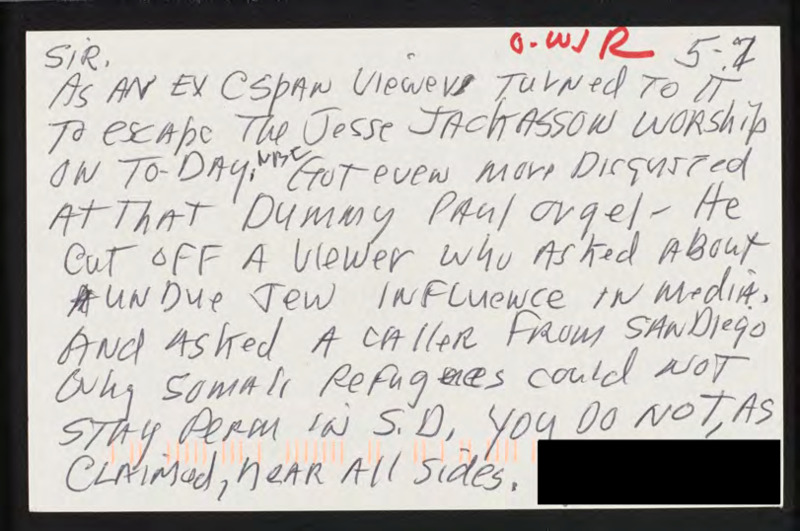 O-WJR 5-7
SIR.
AS AN EX CSPAN VIEWER TURNED TO IT
TO ESCAPE THE JESSE JACKASSOW WORSHIP
ON TO-DAY, NBC GOT EVEN MORE DISGUSTED
AT THAT DUMMY PAUL ORGEL - HE
CUT OFF A VIEWER WHO ASKED ABOUT
UNDUE JEW INFLUENCE IN MEDIA.
AND ASKED A CALLER FROM SAN DIEGO
WHY SOMALI REFUGEES COULD NOT
STAY PERM IN S.D, YOU DO NOT, AS
CLAIMED, HEAR ALL SIDES.